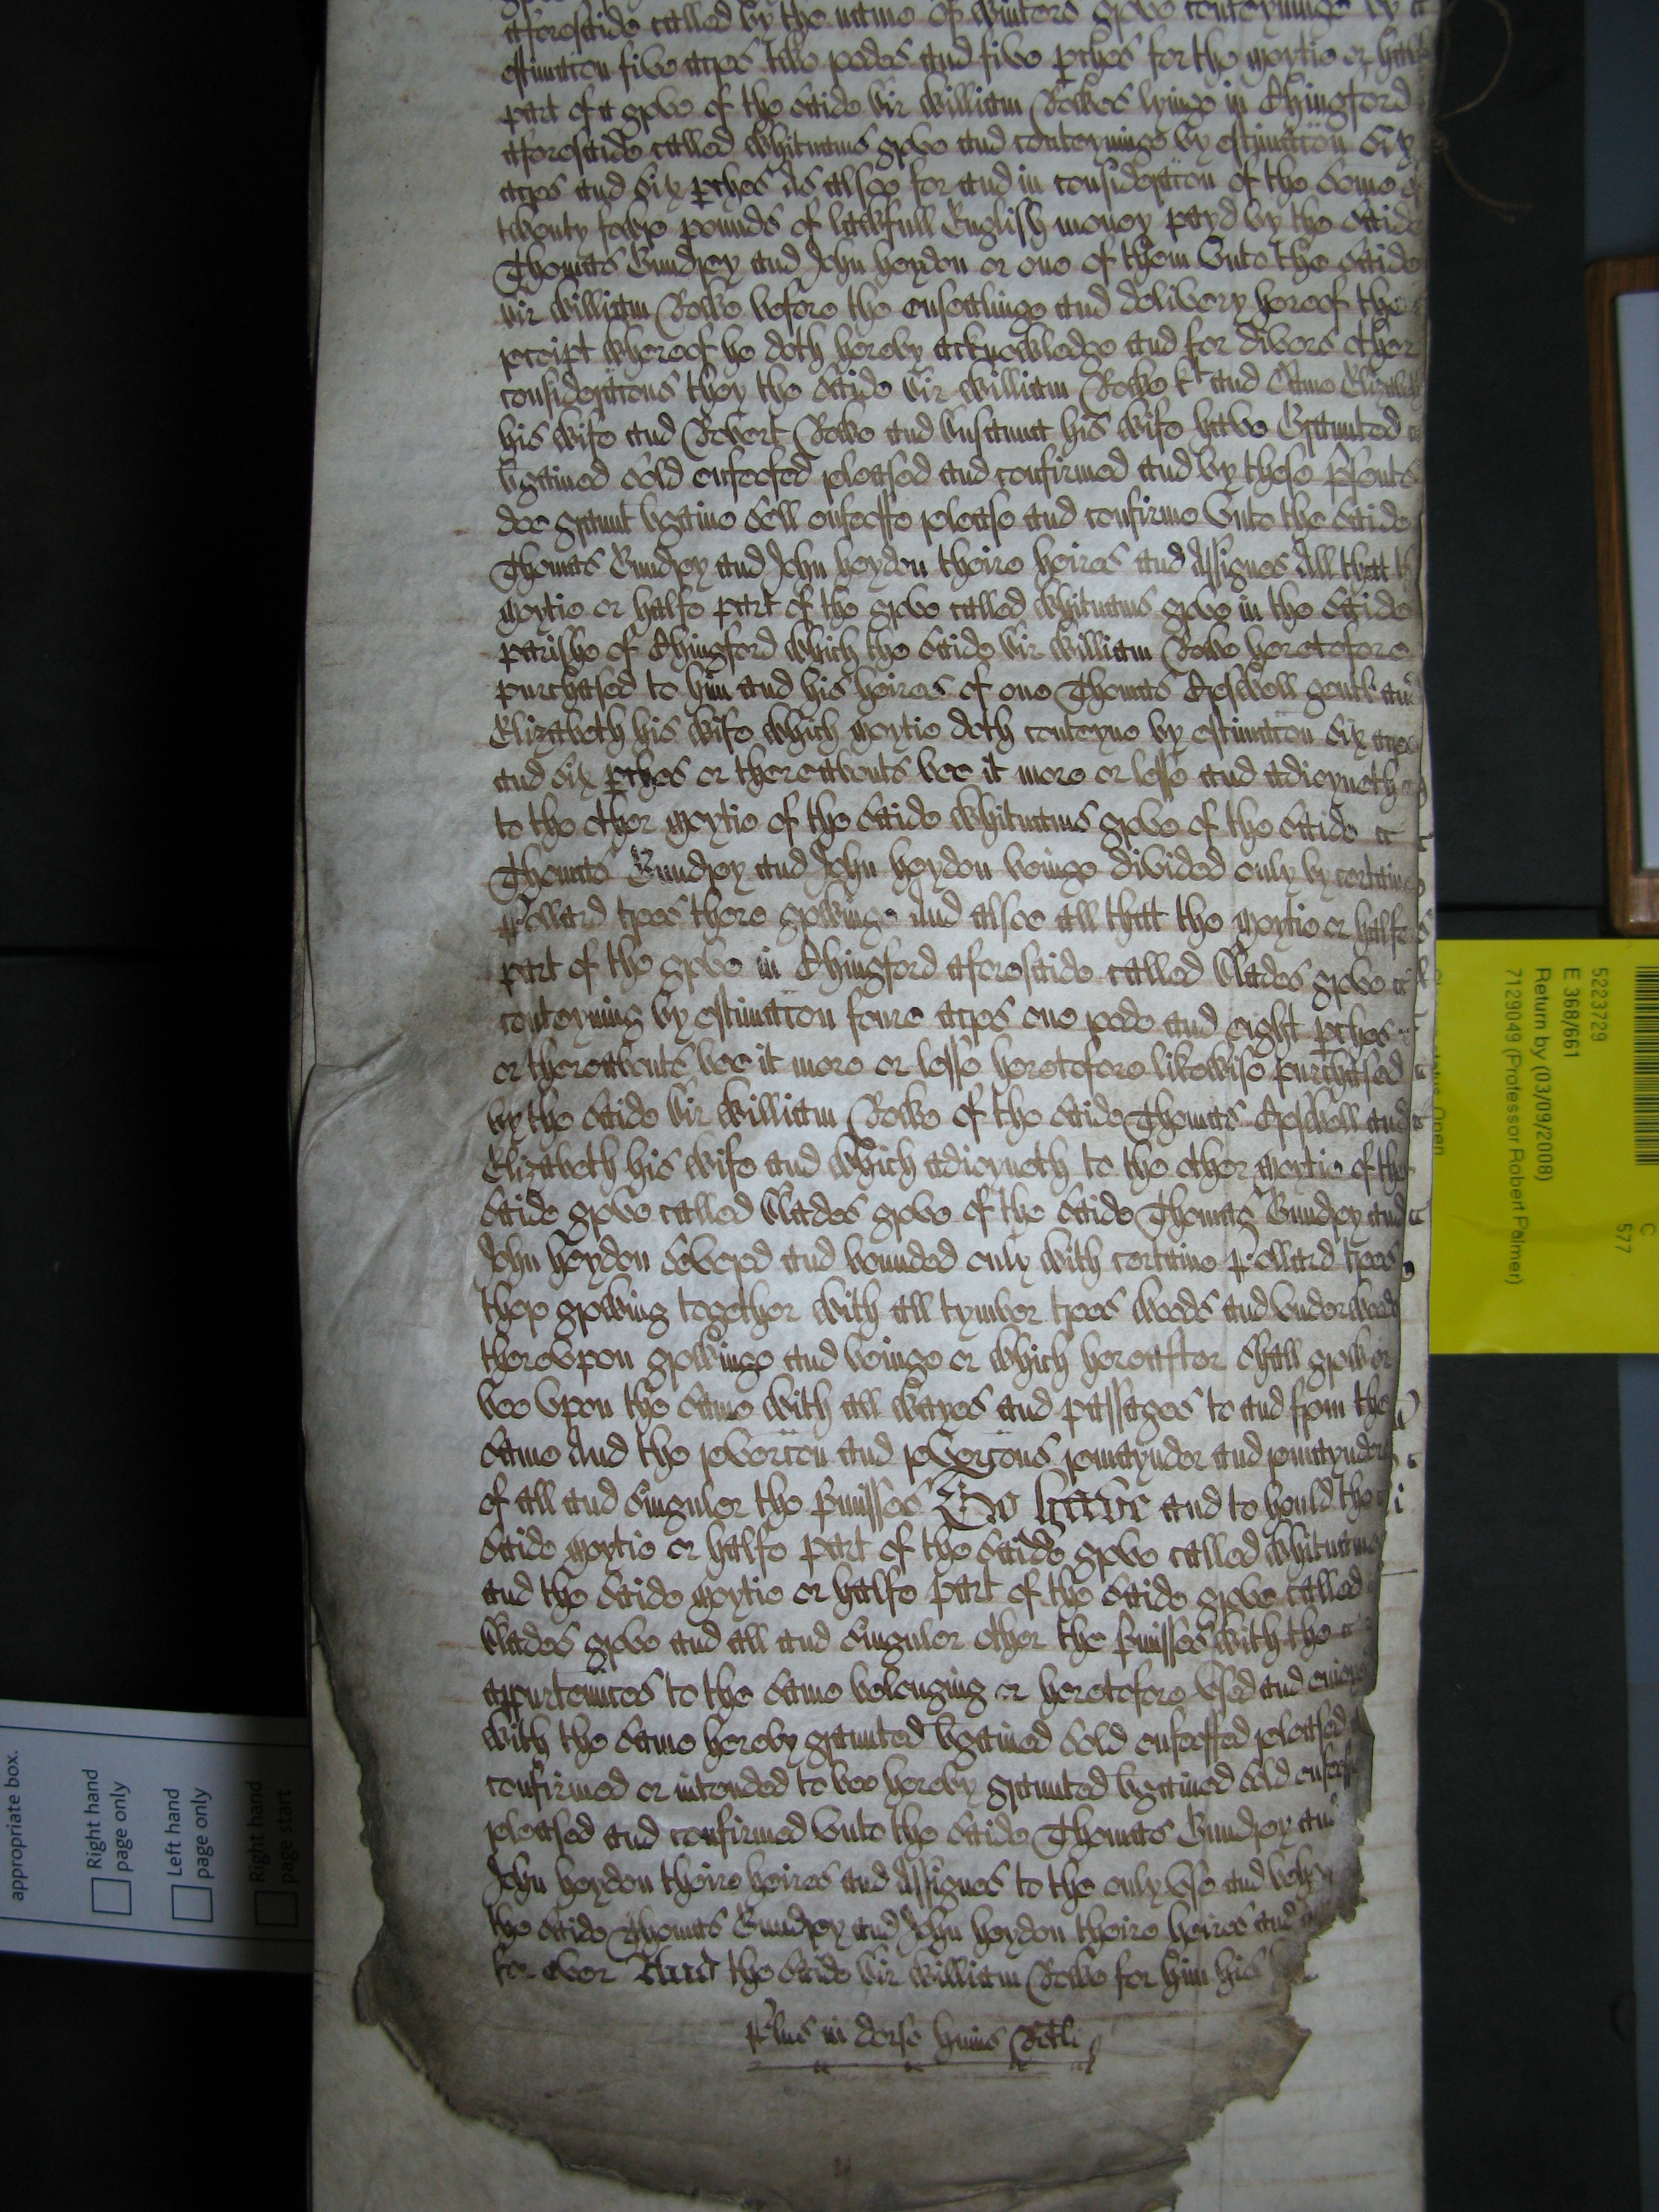 aforesaide called by the name of Winters grove conteyninge by
estimacon five acres two roodes and five pches for the moytie or halfe
part of a grove of the saide Sir William Rowes lyinge in Chingford
aforesaide called Whitnams grove and conteyninge by estimacon Six
acres and six pches As alsoo for and in consideracon of the some of
twenty fowre pounds of lawfull English money payd by the saide
Thomas Gundrey and John heydon or one of them Unto the saide
Sir William Rowe before the ensealinge and delivery hereof the
receipt whereof he doth hereby acknowledge and for divers other
consideracons they the saide Sir William Rowe kt and Dame Elizabeth
his wife and Robert Rowe and Susanna his wife have Graunted
bgained sold enfeofed released and confirmed and by these psents
doe graunt bgaine sell enfeoffe release and confirme Unto the saide
Thomas Gundrey and John heydon theire heires and Assignes All that
moytie or halfe part of the grove called Whitnams grove in the saide
parishe of Chingford which the saide Sir William Rowe heretofore
purchased to him and his heires of one Thomas Croswell gent and
Elizabeth his wife which moytie doth conteyne by estimacon six acres
and six pches or thereabouts bee it more or lesse and adioyneth
to the other moytie of the saide Whitnams grove of the saide
Thomas Gundrey and John heydon beinge divided only by certaine
Pollard trees there growinge And alsoe all that the moytie or halfe
part of the grove in Chingford aforesaide called Slades grove
conteyning by estimacon foure acres one roode and eight pches
or thereabouts bee it more or lesse heretofore likewise purchased
by the saide Sir William Rowe of the saide Thomas Croswell and
Elizabeth his wife and which adioyneth to the other moytie of the
saide grove called Slades grove of the saide Thomas Gundrey and
John heydon severed and bounded only with certaine Pollard trees
there growing together with all tymber trees woods and Underwoods
thereupon growinge and beinge or which hereafter shall grow or
bee Upon the same with all wayes and passages to and from the
same And the revercon and revercons remaynder and remaynders
of all and singuler the pmisses To have and to hould the
saide moytie or halfe part of the saide grove called Whitnams
and the saide moytie or halfe part of the saide grove called
Slades grove and all and singuler other the pmisses with the
appurtennces to the same belonging or heretofore Used and
with the same hereby graunted bgained sold enfeoffed released
confirmed or intended to bee hereby graunted bgained sold
released and confirmed Unto the saide Thomas Gundrey and
John heydon theire heires and Assignes to the only Use and
the saide Thomas Gundrey and John heydon theire heires and
for ever And the saide Sir William Rowe for him his
Plus in dorso huius Rotli
5223729
E 368/661
Return by (03/09/2008)
7129049 (Professor Robert Palmer)
C
577
Open
appropriate box.
Right hand
page only
Left hand
page only
Right hand
page start